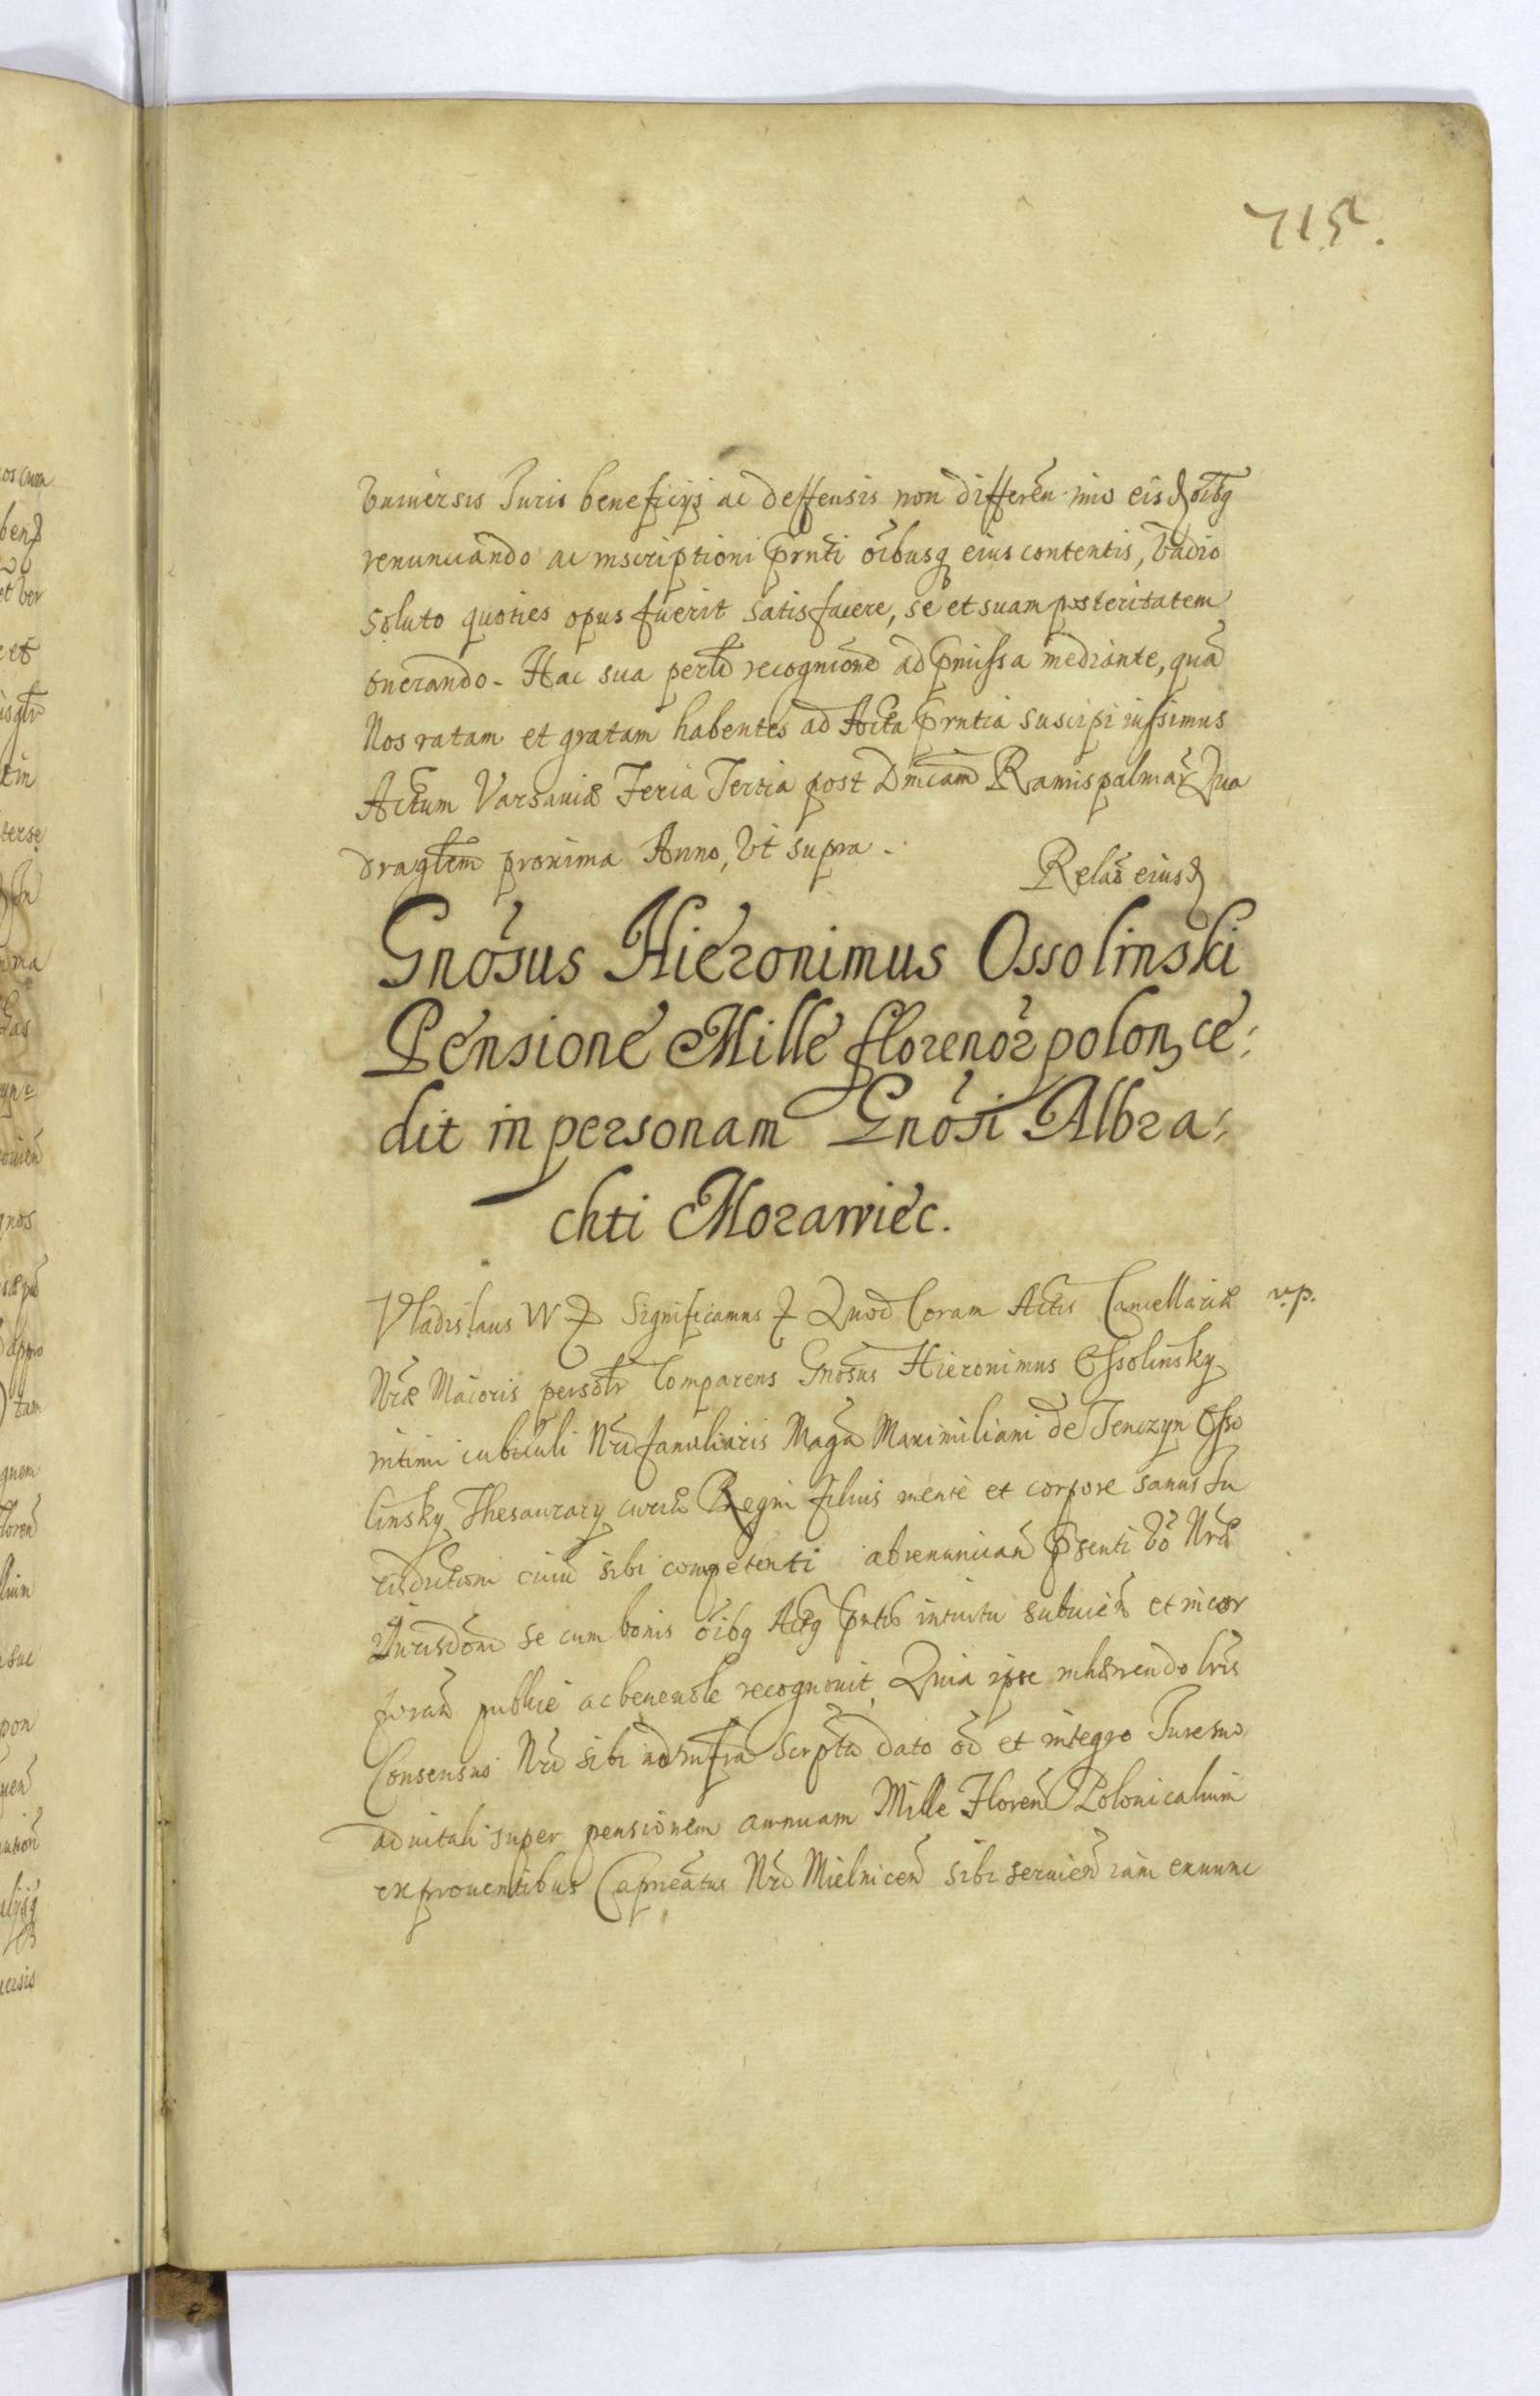 715.
Vniuersis Juris beneficijs ac deffensis non differen̄ imo eisd oībq
renunciando ac inscriptioni prn̄ti oībusq eius contentis, Vadio
soluto quoties opus fuerit satisfacere, se et suam posteritatem
onerando. Hac sua perlt̄ recognione ad pmissa mediante, quā
Nos ratam et gratam habentes ad Acta prntia suscipi iussimus
Actum Varsauiæ Feria Tertia post Dnīcam Ramispalmar Qua
dragl̄em proxima Anno, Vt supra.
Relaō eiusd
Gnōsus Hieronimus Ossolinski
Pensione Mille florenor̄ polon, ce:
dit in personam Gnōsi Albra:
chti Morawiec.
Vladislaus IV Significamus Quod Coram Actis Cancellariæ
v.p.
Nræ Maioris persolr̄ Comparens Gnōsus Hieronimus Ossolinsky
intimi cubiculi Nrī familiaris Magci Maximiliani de Tenczyn Osso
linsky Thesaurarij curiæ Regni filius mente et corpore sanus Ju
risdictioni cuiuis sibi competenti abrenuncian̄ psenti Vō Nræ
Jurisdōni se cum bonis oībq Actq pntis intuitu subiicien̄ et incor
poran̄ publice ac beneuole recognouit, Quia ipse inhærendo lrīs
Consensus Nrī sibi ad infra scrpta dato oī et integro Jure suo
aduitali super pensionem annuam Mille Floren̄ Polonicalium
ex prouentibus Capneatus Nrī Mielnicen̄ sibi seruien̄ iam exnunc